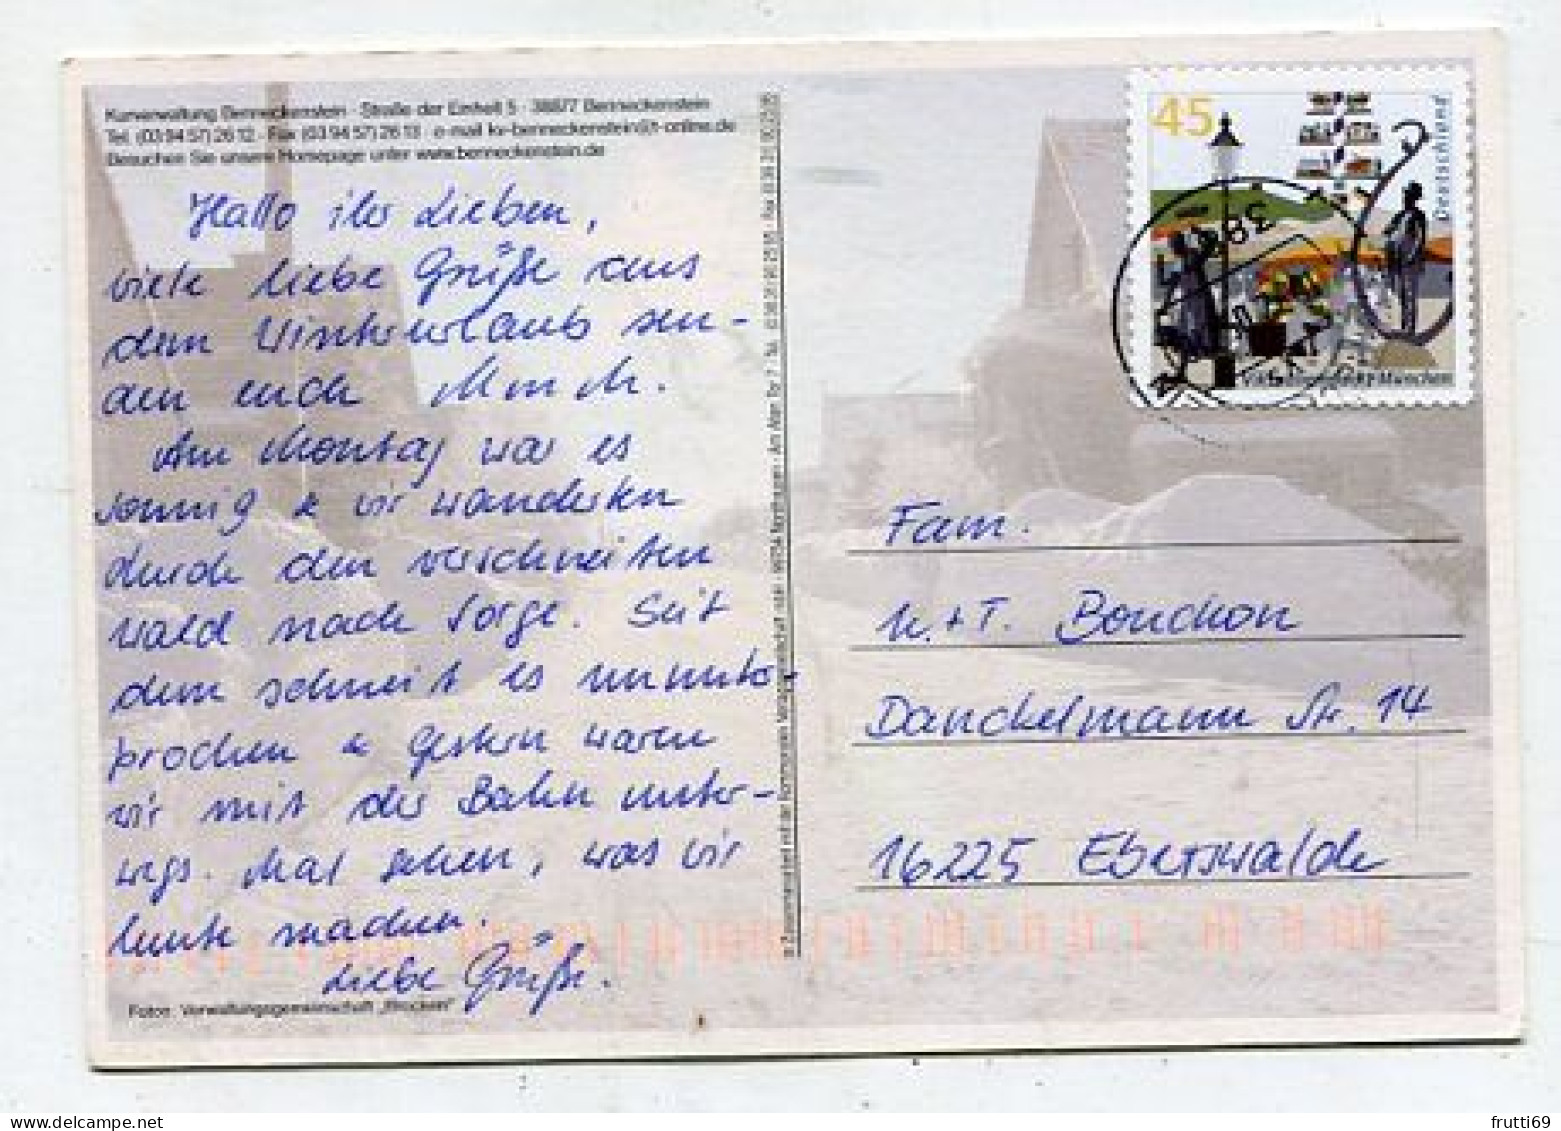 Kurverwaltung Benneckenstein · Straße der Einheit 5 · 38877 Benneckenstein
Tel. (03 94 57) 26 12 · Fax (03 94 57) 26 13 · e-mail kv-benneckenstein@t-online.de
Besuchen Sie unsere Homepage unter www.benneckenstein.de
Hallo ihr Lieben,
viele liebe Grüße aus
dem Winterurlaub sen-
den euch
Am Montag war es
sonnig & wir wanderten
durch den verschneiten
Wald nach Sorge. Seit
dem schneit es ununter-
brochen & gestern waren
wir mit der Bahn unter-
wegs. Mal sehen, was wir
heute machen.
Liebe Grüße.
Fotos: Verwaltungsgemeinschaft „Brocken“
45
Deutschland
Viktualienmarkt München
388
Fam.
K.+T. Bouchon
Danckelmann Str. 14
16225 Eberswalde
frutti69